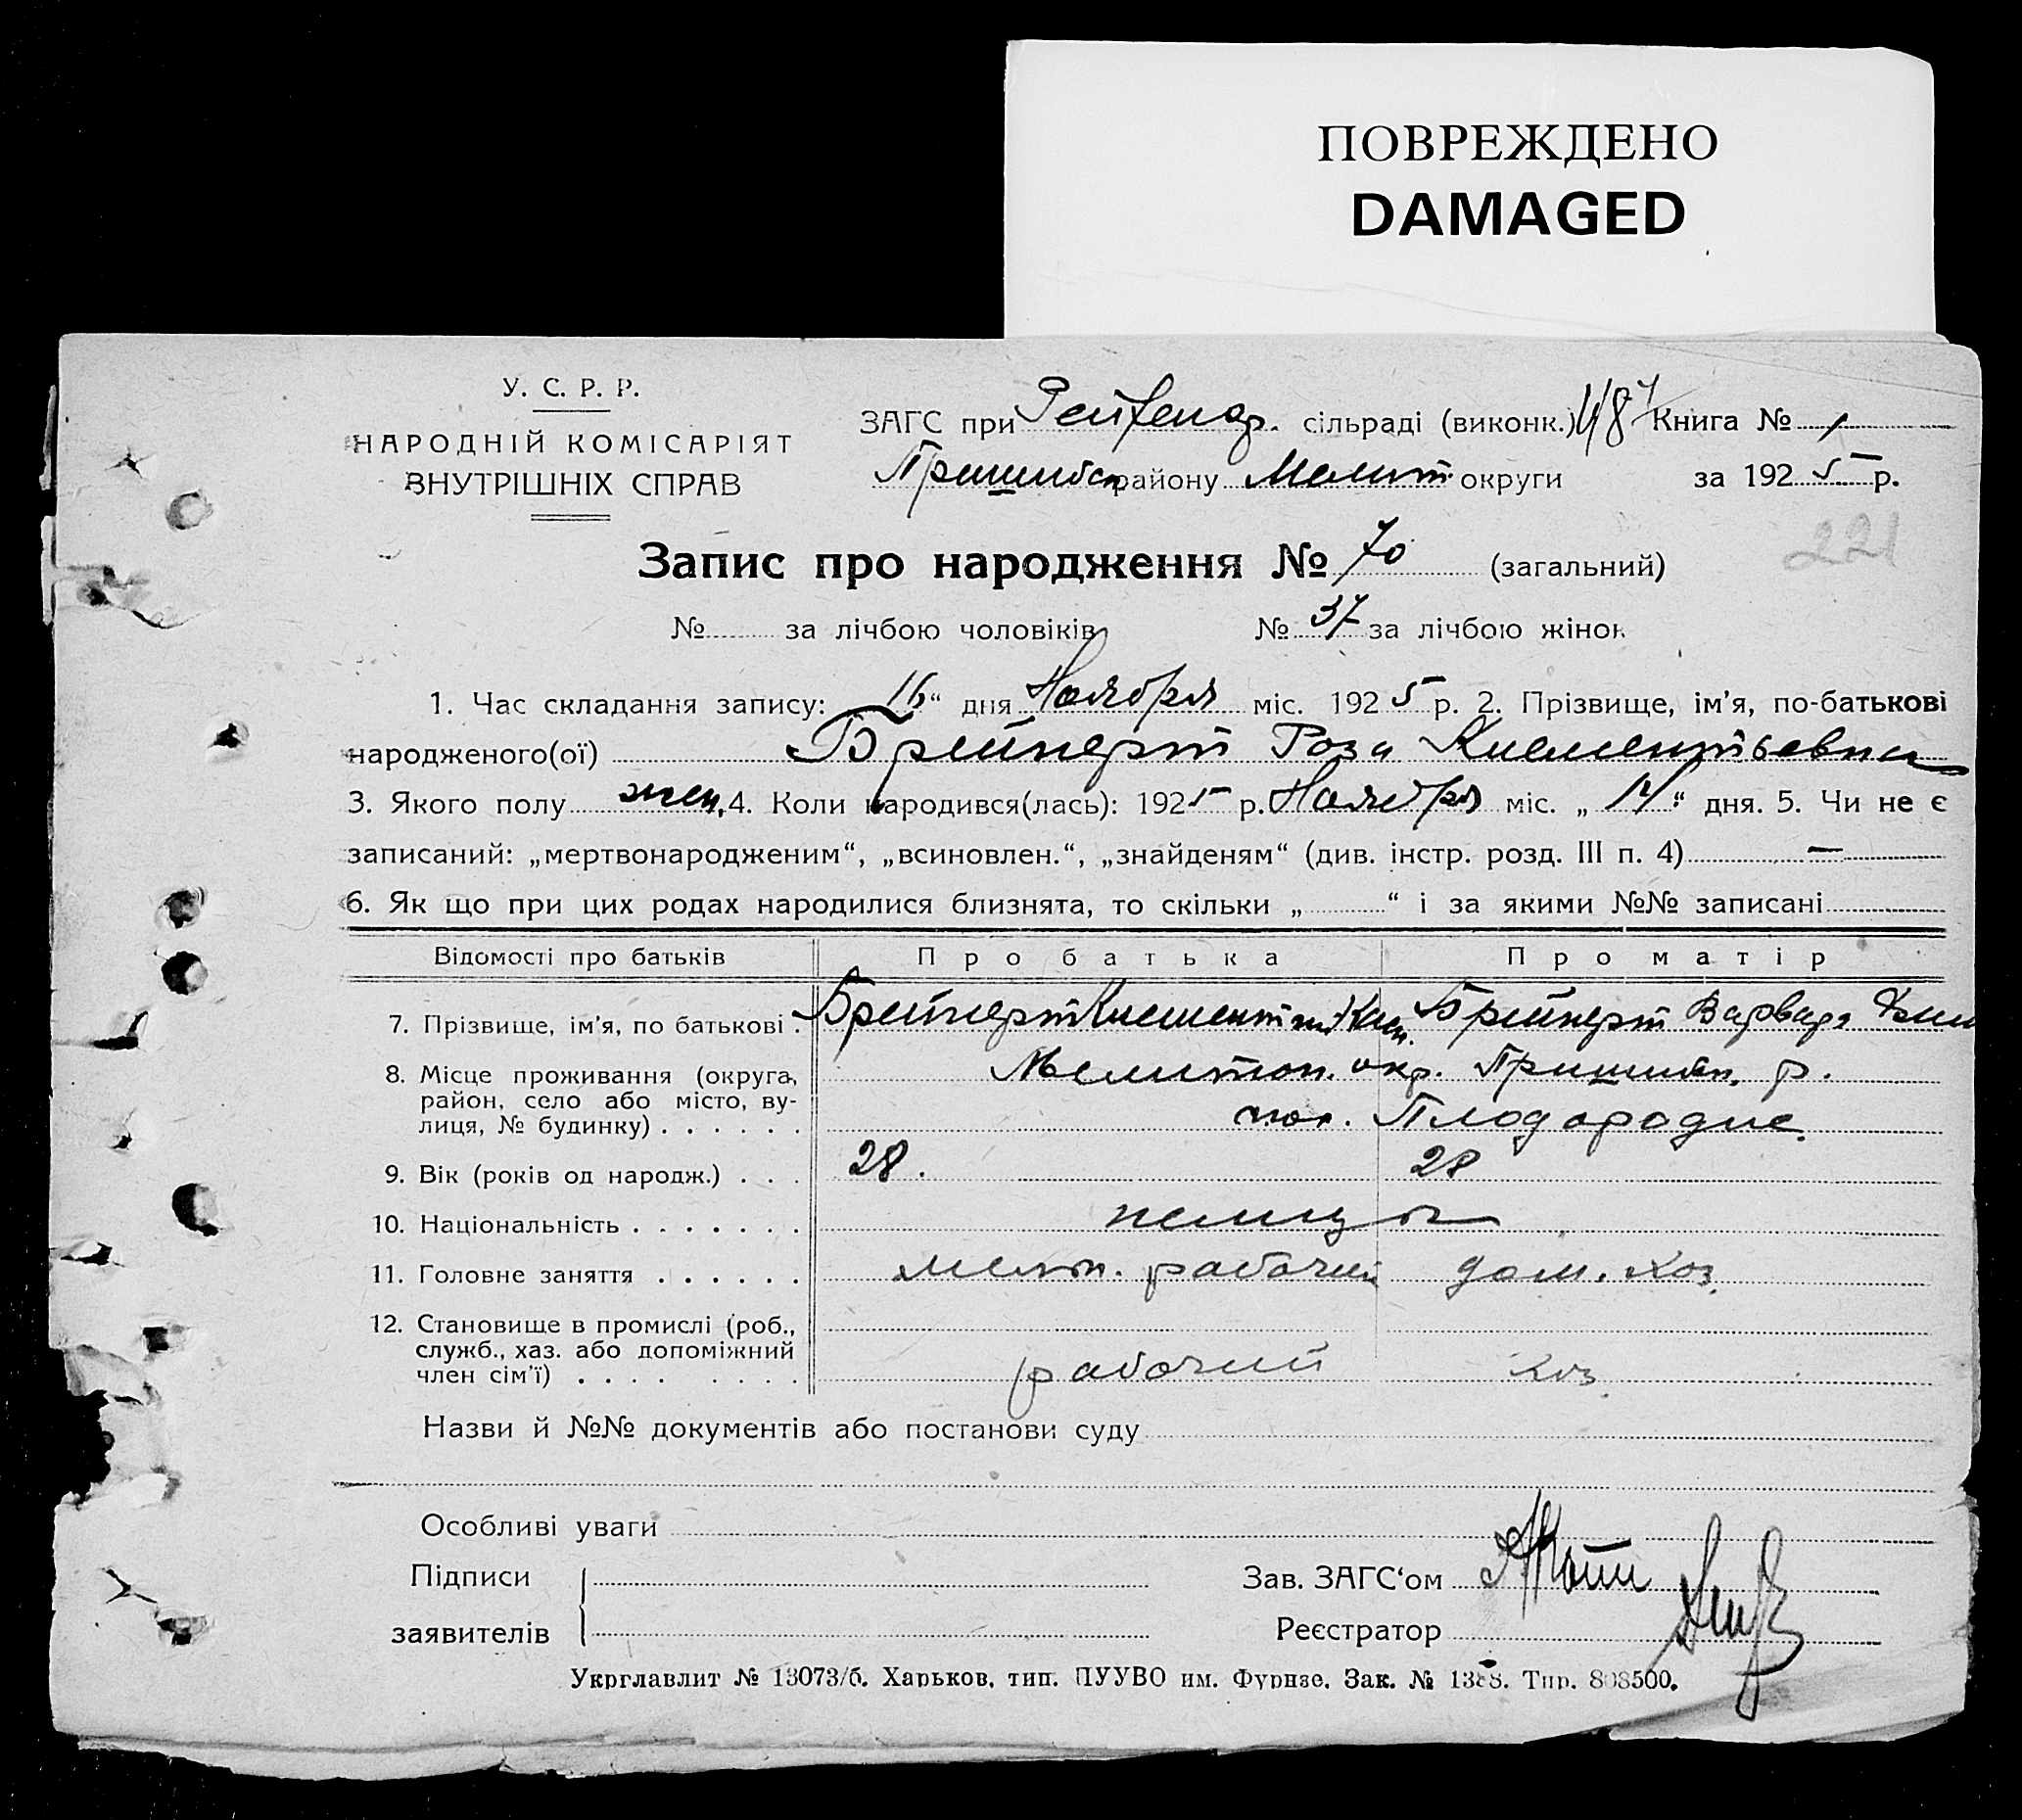 ПОВРЕЖДЕНО
DAMAGED
У. С. Р. Р.
НАРОДНІЙ КОМІСАРІЯТ
ВНУТРІШНІХ СПРАВ
ЗАГС при Рейхенф. сільраді (виконк.) 487 Книга № 1
Пришибск району Мелит. округи за 1925 р.
221
Запис про народження № 70 (загальний)
№ за лічбою чоловіків № 37 за лічбою жінок
1. Час складання запису: 16“ дня Ноября міс. 1925 р. 2. Прізвище, ім’я, по-батькові
народженого(ої) Брейнерт Роза Клементьевна
3. Якого полу жен. 4. Коли народився(лась): 1925 р. Ноября міс. „14“ дня. 5. Чи не є
записаний: „мертвонародженим“, „всиновлен.“, „знайденям“ (див. інстр. розд. III п. 4) —
6. Як що при цих родах народилися близнята, то скільки „ “ і за якими №№ записані
Відомості про батьків Про батька Про матір
7. Прізвище, ім’я, по батькові . Брейнерт Клементий Клем. Брейнерт Варвара
8. Місце проживання (округа, Мелитоп. окр. Пришибск. р.
район, село або місто, ву-
лиця, № будинку) . . . . . . Плодородие.
9. Вік (років од народж.) . . . 28. 28
10. Національність . . . . . . . немцы
11. Головне заняття . . . . . . рабочий дом. хоз.
12. Становище в промислі (роб.,
служб., хаз. або допоміжний
член сім’ї) . . . . . . . . рабочий хоз.
Назви й №№ документів або постанови суду
Особливі уваги
Підписи
Зав. ЗАГС‘ом
заявителів
Реєстратор
Укрглавлит № 13073/б. Харьков, тип. ПУУВО им. Фрунзе. Зак. № 1388. Тир. 808500.